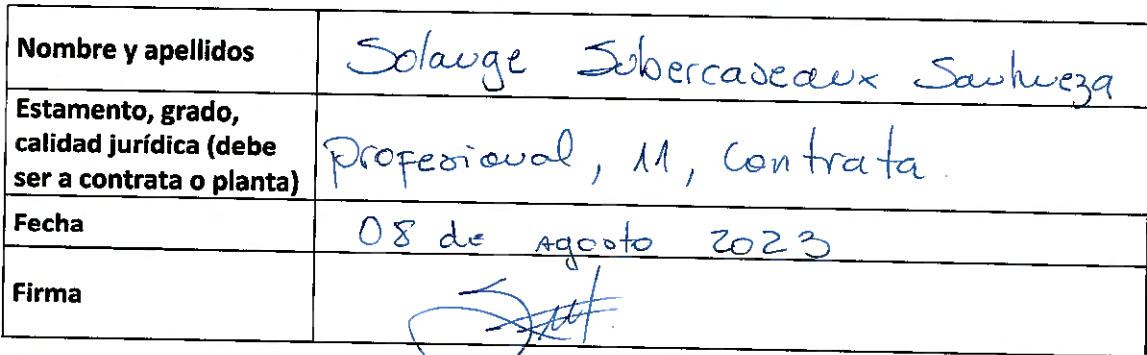 Nombre y apellidos
Solange Subercaseaux Sanhueza
Estamento, grado,
calidad jurídica (debe
ser a contrata o planta)
profesional, 11, Contrata.
Fecha
08 de Agosto 2023
Firma